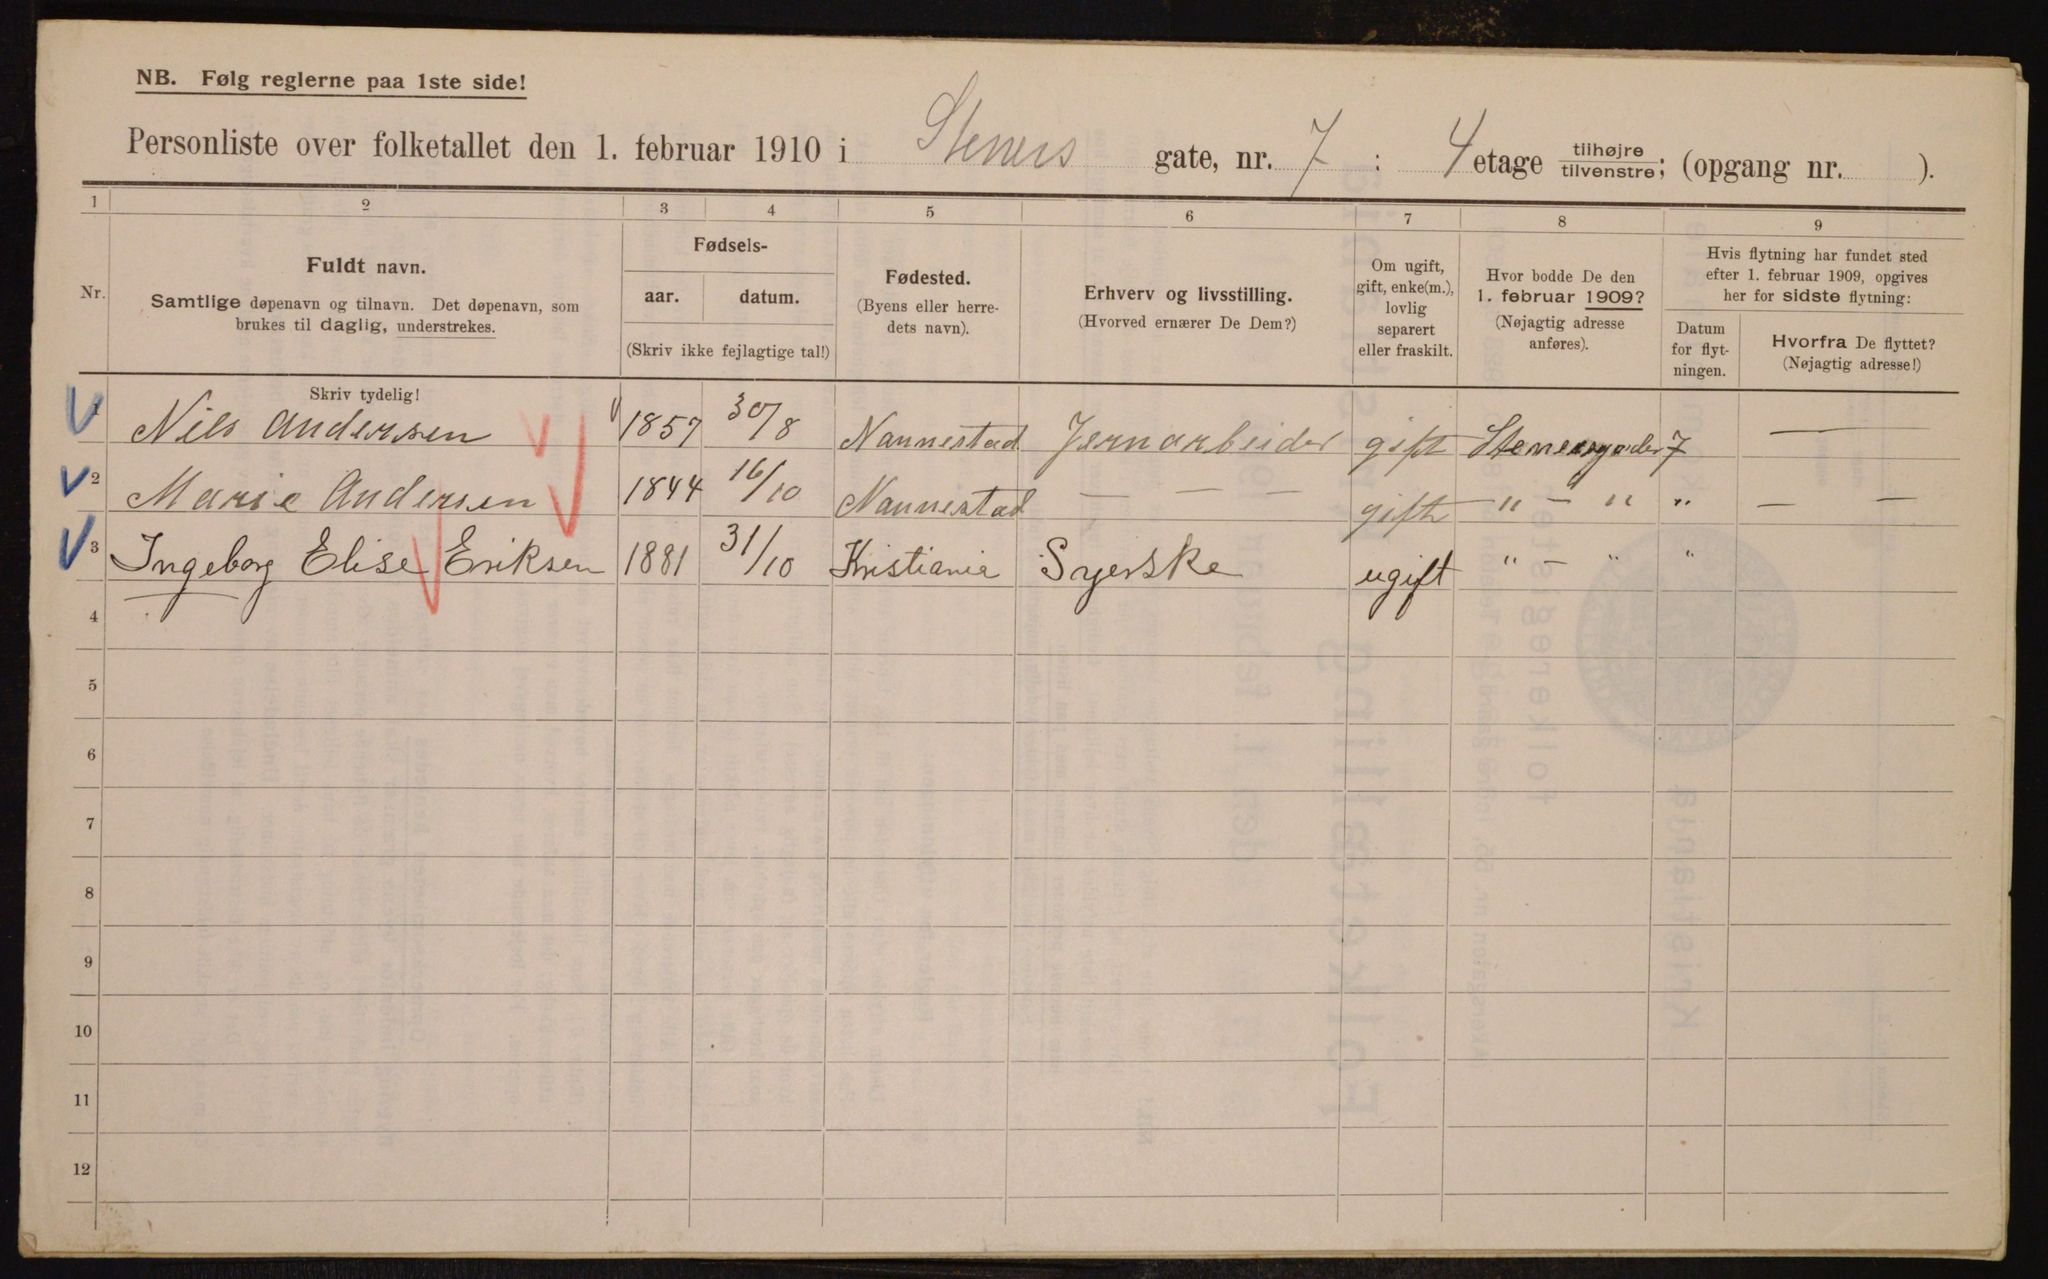 NB. Følg reglerne paa 1ste side!
Personliste over folketallet den 1. februar 1910 i Steners gate, nr. 7 : 4 etage tilhøjre/tilvenstre; (opgang nr. ).
1 2 3 4 5 6 7 8 9
Nr.
Fuldt navn.
Samtlige døpenavn og tilnavn. Det døpenavn, som
brukes til daglig, understrekes.
Skriv tydelig!
Fødsels-
aar. datum.
(Skriv ikke fejlagtige tal!)
Fødested.
(Byens eller herre-
dets navn).
Erhverv og livsstilling.
(Hvorved ernærer De Dem?)
Om ugift,
gift, enke(m.),
lovlig
separert
eller fraskilt.
Hvor bodde De den
1. februar 1909?
(Nøjagtig adresse
anføres).
Hvis flytning har fundet sted
efter 1. februar 1909, opgives
her for sidste flytning:
Datum
for flyt-
ningen.
Hvorfra De flyttet?
(Nøjagtig adresse!)
1 Nils Andersen 1857 30/8 Nannestad Jernarbeider gift Stenersgaden 7 —
2 Marie Andersen 1844 16/10 Nannestad — — — gift " — " " — —
3 Ingeborg Elise Eriksen 1881 31/10 Kristiania Syerske ugift " — " "
4
5
6
7
8
9
10
11
12